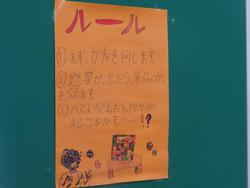 ルール
①まず、ガチャを回します
②惑星が、出たら、景品が、
もらえます
③ハズレが出たら、何かが、
起こるかも〜!?